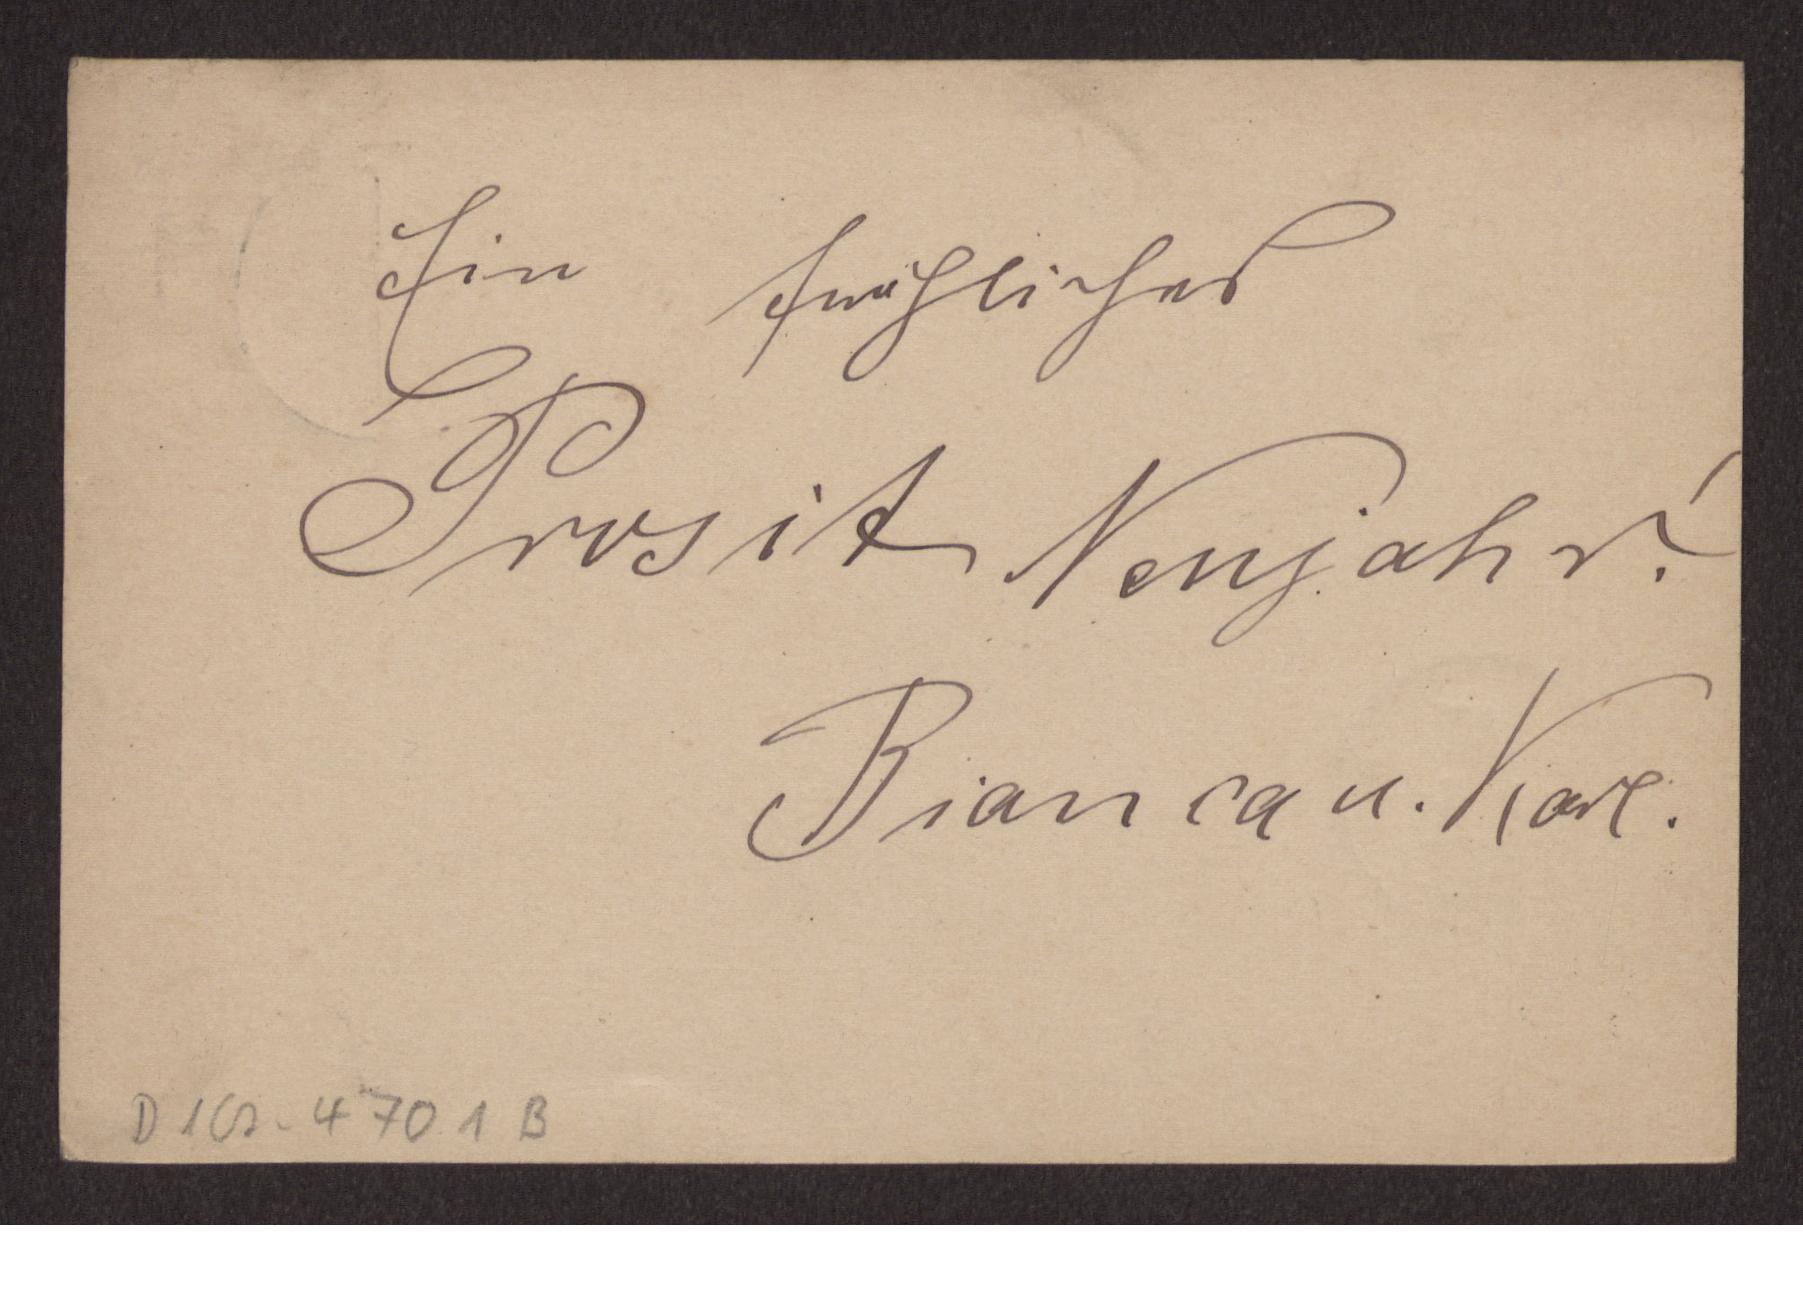 Ein fröhliches
Prosit Neujahr!
Bianca u. Karl.
4701 B